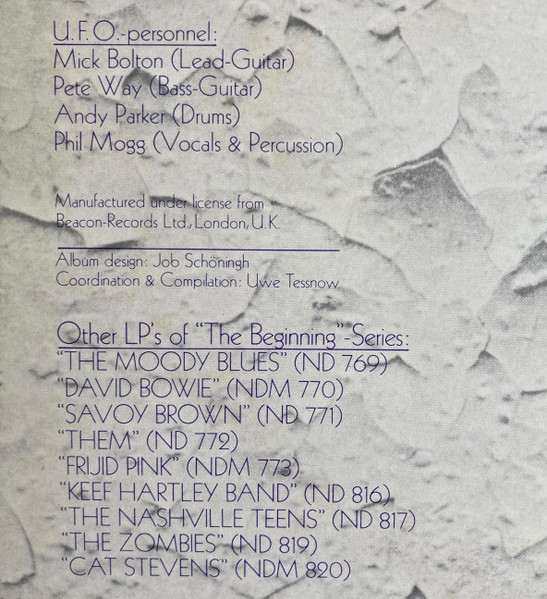 U.F.O.-personnel:
Mick Bolton (Lead-Guitar)
Pete Way (Bass-Guitar)
Andy Parker (Drums)
Phil Mogg (Vocals & Percussion)
Manufactured under license from
Beacon-Records Ltd., London, U.K.
Album design: Job Schöningh
Coordination & Compilation: Uwe Tessnow
Other LP's of “The Beginning”-Series:
“THE MOODY BLUES” (ND 769)
“DAVID BOWIE” (NDM 770)
“SAVOY BROWN” (ND 771)
“THEM” (ND 772)
“FRIJID PINK” (NDM 773)
“KEEF HARTLEY BAND” (ND 816)
“THE NASHVILLE TEENS” (ND 817)
“THE ZOMBIES” (ND 819)
“CAT STEVENS” (NDM 820)